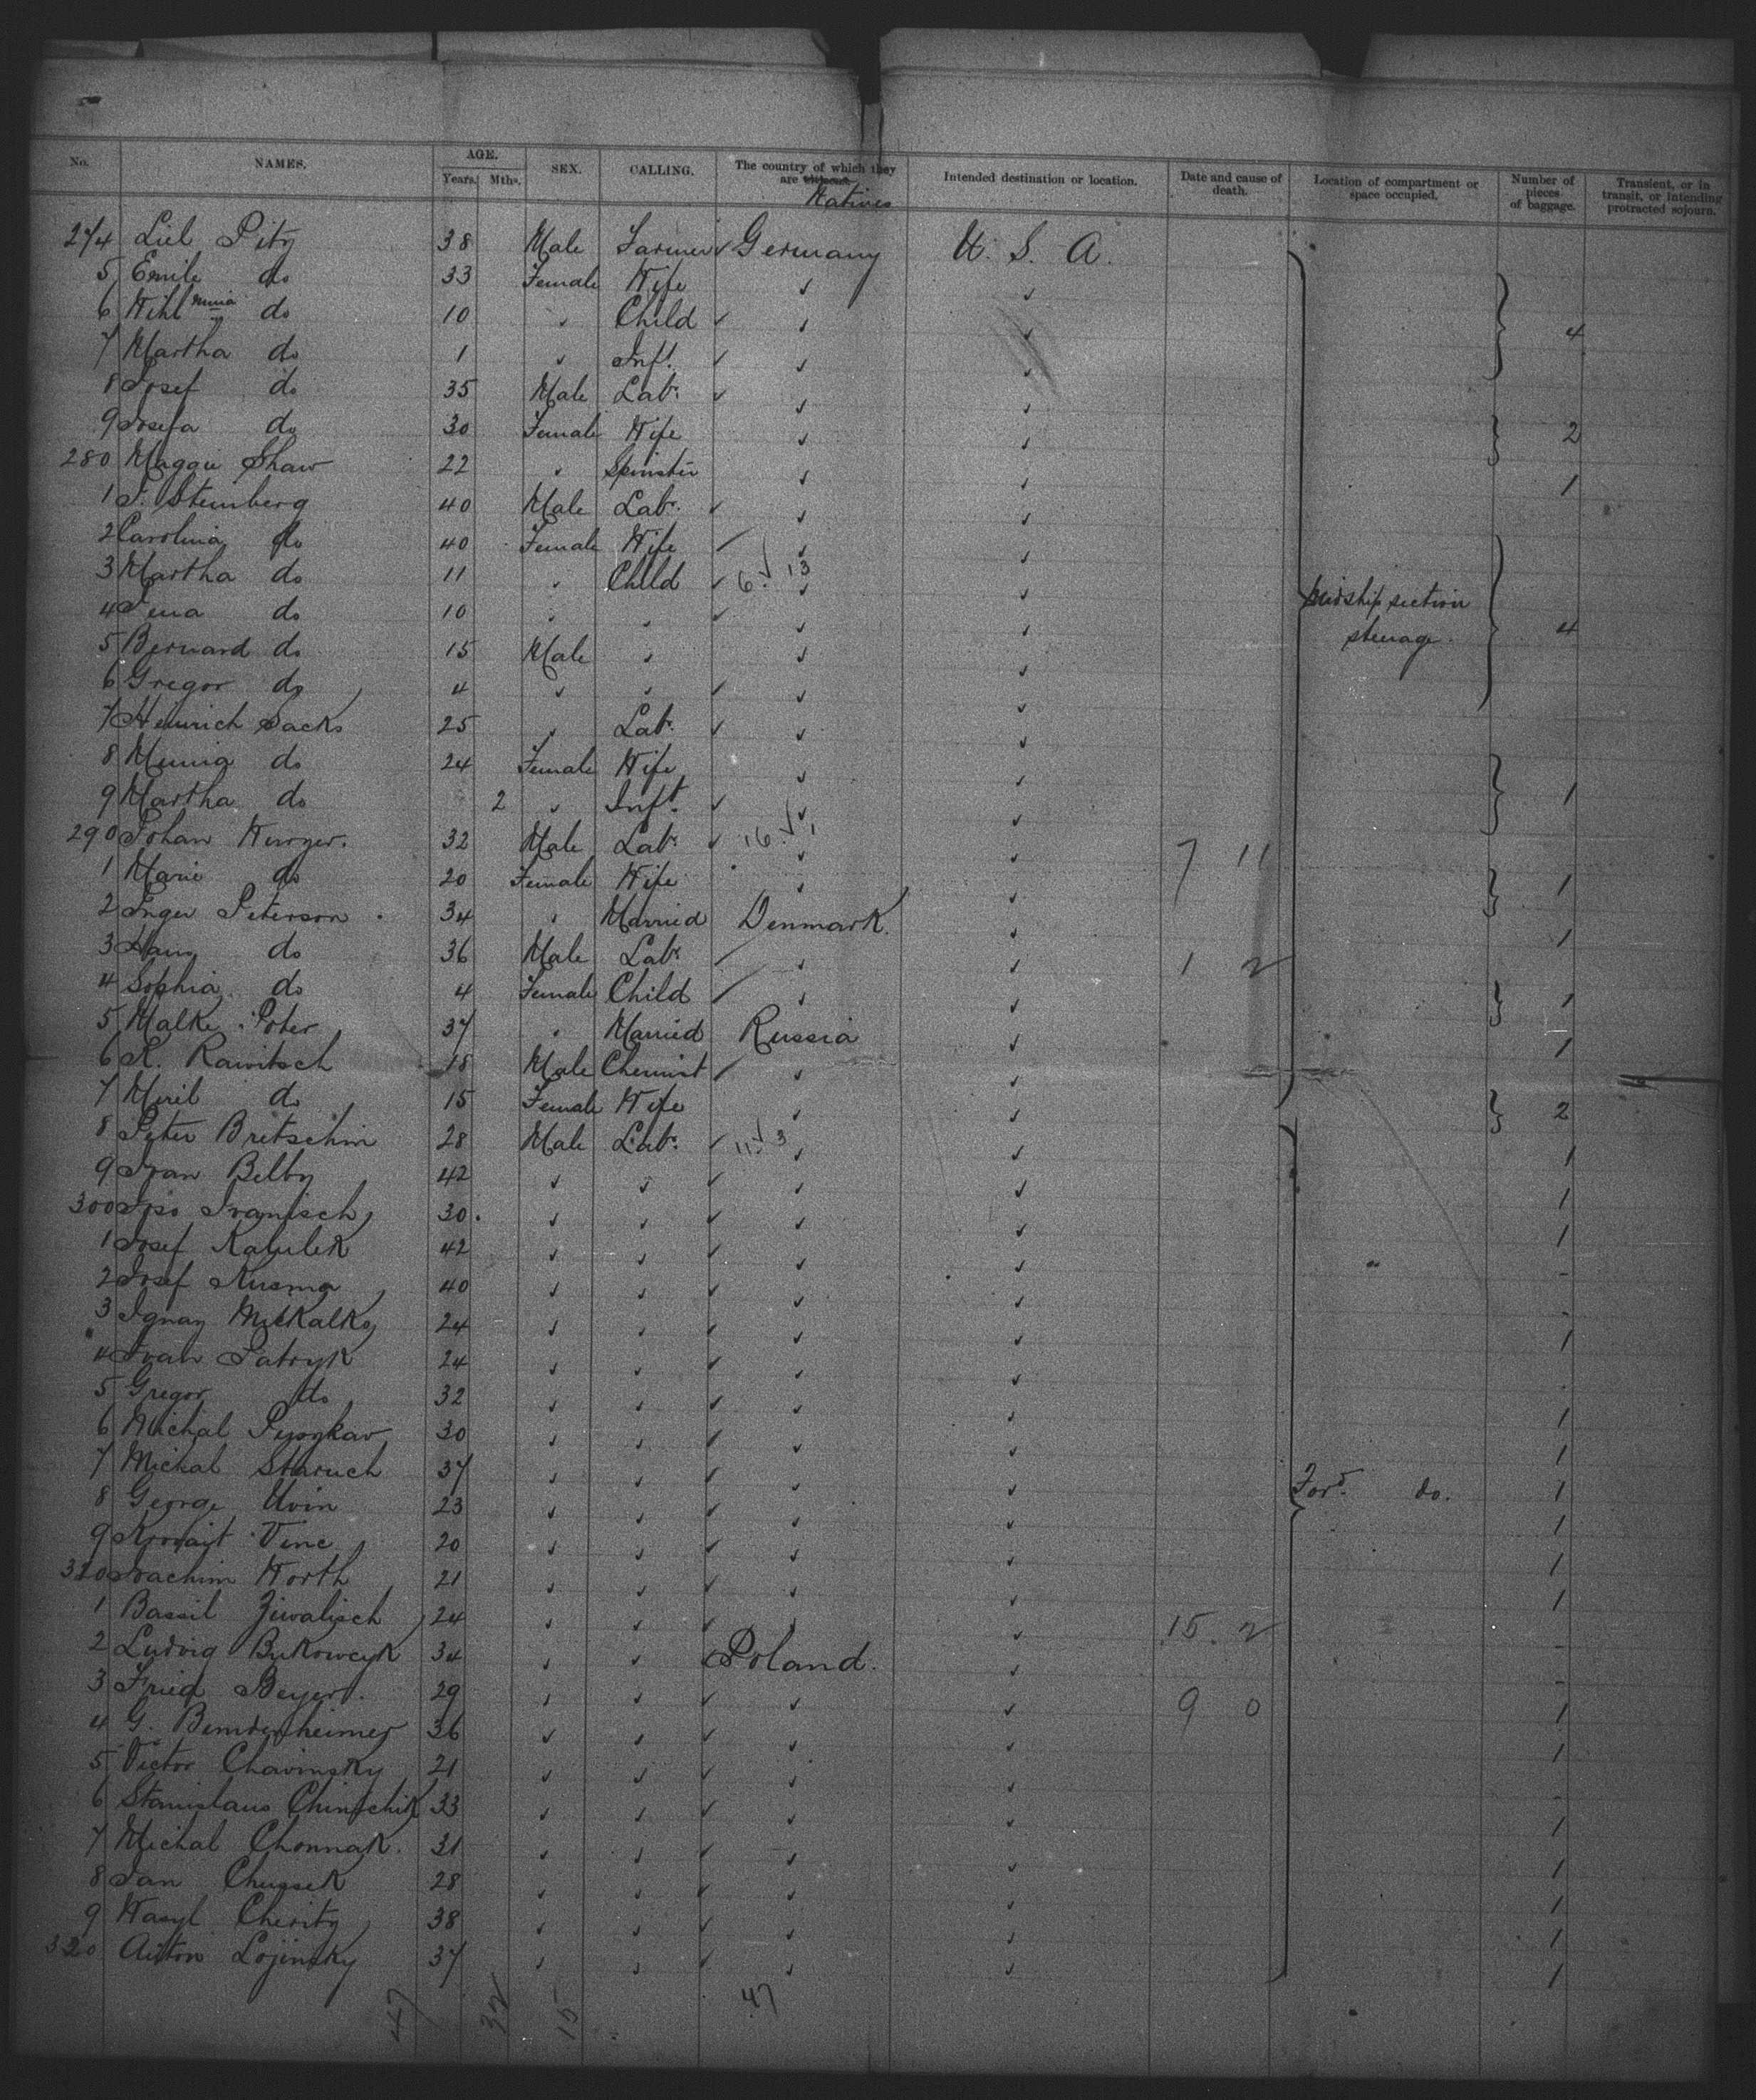 No. NAMES. AGE. Years. Mths. SEX. CALLING. The country of which they are without Natives Intended destination or location. Date and cause of death. Location of compartment or space occupied. Number of pieces of baggage. Transient, or in transit, or intending protracted sojourn.
274 Liel Pitz 38 Male Farmer ✓ Germany U. S. A.
5 Emile do 33 Female Wife ✓ ✓
6 Wihlmina do 10 ✓ Child ✓ ✓ ✓ 4
7 Martha do 1 ✓ Inft. ✓ ✓ ✓
8 Josef do 35 Male Labr. ✓ ✓ ✓
9 Josefa do 30 Female Wife ✓ ✓ 2
280 Maggie Shaw 22 ✓ Spinster ✓ ✓ 1
1 J. Steinberg 40 Male Labr. ✓ ✓ ✓
2 Carolina do 40 Female Wife ✓ ✓ ✓
3 Martha do 11 ✓ Child ✓ 6 ✓ 13 ✓ ✓ midship section
4 do 10 ✓ ✓ ✓ ✓ ✓ steerage 4
5 Bernard do 15 Male ✓ ✓ ✓
6 Gregor do 4 ✓ ✓ ✓ ✓ ✓
7 Heinrich Sacks 25 ✓ Labr. ✓ ✓ ✓
8 Minna do 24 Female Wife ✓ ✓
9 Martha do 2 ✓ Inft. ✓ ✓ ✓ 1
290 Johan 32 Male Labr. ✓ 16 ✓ 1 ✓ ✓ 7 11
1 Marie do 20 Female Wife ✓ ✓ 1
2 Inger Peterson 34 ✓ Married Denmark. ✓ 1
3 Hans do 36 Male Labr. ✓ ✓ ✓ 1 2
4 Sophia do 4 Female Child ✓ ✓ ✓ 1
5 Malke Poter 37 ✓ Married Russia ✓ 1
6 R. Rawitsch 18 Male Chemist ✓ ✓ ✓
7 Meril do 15 Female Wife ✓ ✓ 2
8 Peter Britschin 28 Male Labr. ✓ 11 ✓ 3 ✓ ✓ 1
9 Ivan Belby 42 ✓ ✓ ✓ ✓ ✓ 1
300 Ivanisch 30. ✓ ✓ ✓ ✓ ✓ 1
1 Josef Kabulek 42 ✓ ✓ ✓ ✓ ✓ " -
2 Josef Kusma 40 ✓ ✓ ✓ ✓ ✓ -
3 Ignaz 24 ✓ ✓ ✓ ✓ ✓ 1
4 Ivan Patryk 24 ✓ ✓ ✓ ✓ ✓ -
5 Gregor do 32 ✓ ✓ ✓ ✓ ✓ 1
6 Michal 30 ✓ ✓ ✓ ✓ ✓ 1
7 Michal Staruch 37 ✓ ✓ ✓ ✓ ✓ Ford. do. 1
8 George Uvin 23 ✓ ✓ ✓ ✓ ✓ 1
9 Vinc 20 ✓ ✓ ✓ ✓ ✓ 1
310 Joachim Worth 21 ✓ ✓ ✓ ✓ ✓ 1
1 Bassil Ziwalisch 24 ✓ ✓ ✓ ✓ ✓ 15 2 -
2 Ludvig Bukowcyk 34 ✓ ✓ ✓ Poland. ✓ -
3 Fried Beyer. 29 ✓ ✓ ✓ ✓ ✓ 9 0 1
4 G. 36 ✓ ✓ ✓ ✓ ✓ 1
5 Victor Chavinsky 21 ✓ ✓ ✓ ✓ ✓ -
6 Stanislaus Chinschik 33 ✓ ✓ ✓ ✓ ✓ 1
7 Michal Chonnak. 31 ✓ ✓ ✓ ✓ ✓ 1
8 Jan Chussek 28 ✓ ✓ ✓ ✓ ✓ 1
9 Wasyl Cherity 38 ✓ ✓ ✓ ✓ ✓ 1
320 Anton Lojinsky 37 ✓ ✓ ✓ ✓ ✓ 1
47 32 15 47